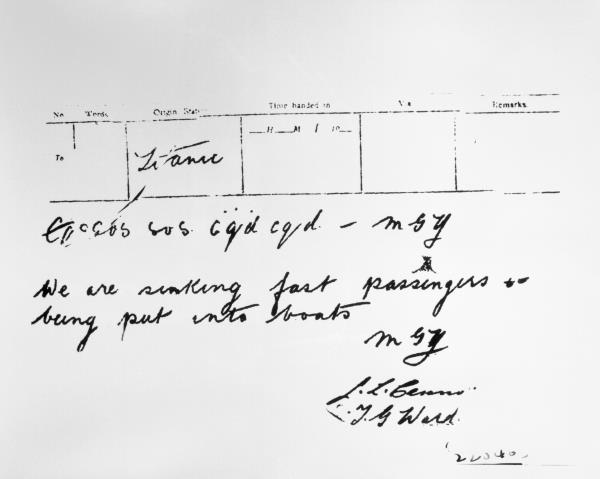 No. Words. Origin Station Time handed in Via Remarks.
To Titanic H M 19
SOS SOS cqd cqd - MGY
We are sinking fast passengers
being put into boats
MGY
T G Ward